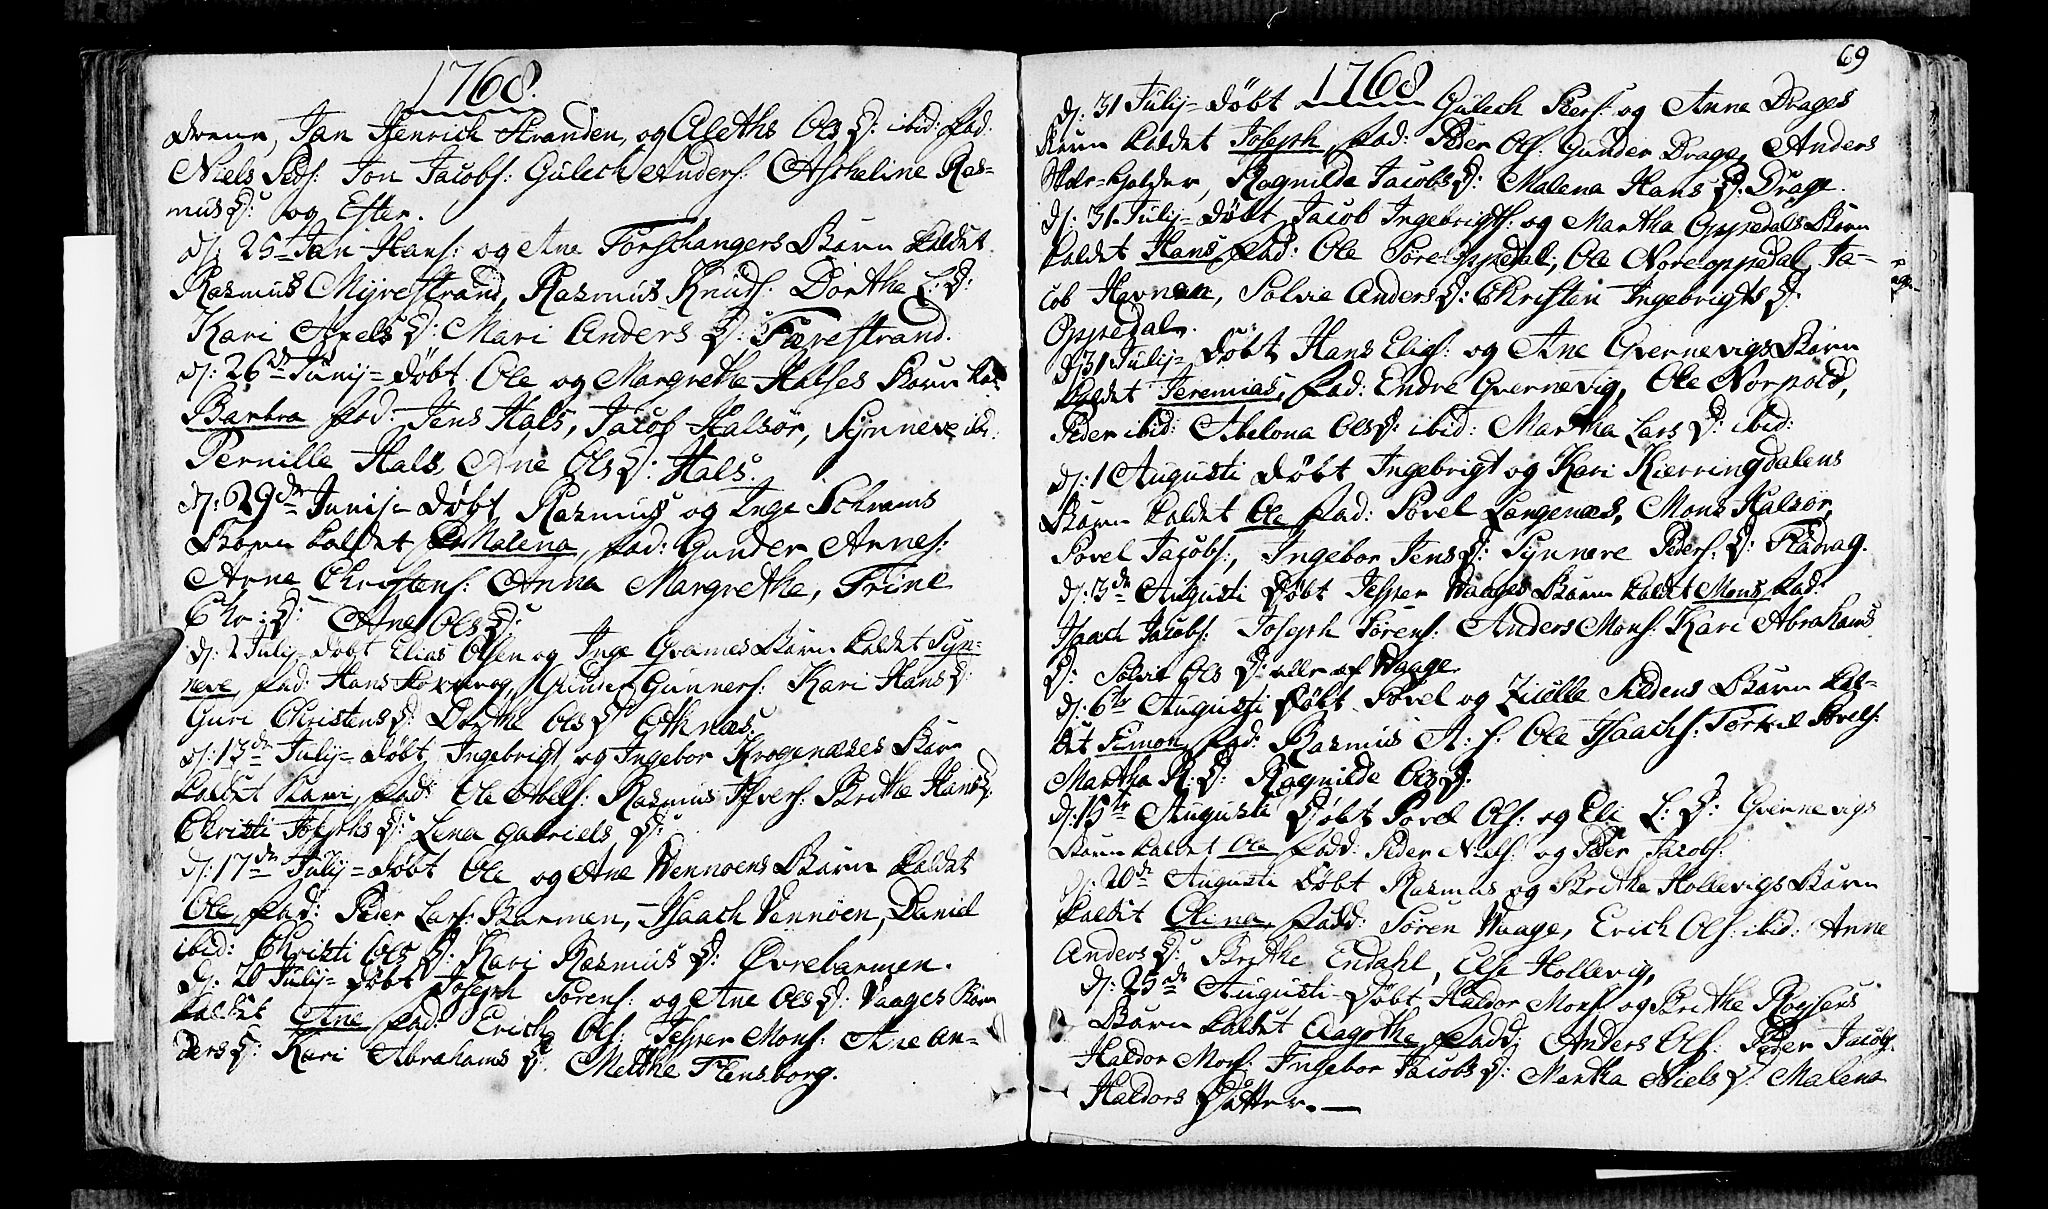 1768.
Jan Henrich Stranden, og Alethe Ols D: ibid: fad:
Niels Peds: Jon Jacobs: Gulech Anders: Ascheline Ras-
mus D: og Ester.
d: 25 Jan Hans: og Ane Torschangers Barn kaldet
Rasmus Myrestrand, Rasmus Knuds: Dorthe L: D:
Kari Axels D: Mari Anders D: Færestrand.
d: 26de Junij = døbt Ole og Margrethe Halses Barn kal:
Barbra fad: Jens Hals, Jacob Halsør, Synneve ibi:
Pernille Hals, Ane Ols D: Hals.
d: 29de Junij = døbt Rasmus og Inge Schrams
Barn kaldet Malena, fad: Gunder Arnes:
Arne Christens: Anna Margrethe, Trine
Chr: D: Ane Ols D:
d: 2 Julij = døbt Elias Olsen og Inge Gvames Barn kaldet Syn-
neve, fad: Hans Gunder Gunners: Kari Hans D:
Guri Christens D: Dorthe Ols D:
d: 13de Julij = døbt Ingebrigt og Ingebor Krogenæses Barn
kaldet Kari, fad: Ole Abels: Rasmus Ifvers: Brithe Hans D:
Christi Josephs D: Lena Gabriels D:
d: 17de Julij = døbt Ole og Ane Vennoens Barn kaldet
Ole, fad: Peder Lars: Barmen, Isaach Vennoen, Daniel
ibid: Christi Ols D: Kari Rasmus D: Øvrebarmen.
d: 20 Julij = døbt Joseph Sørens: og Ane Ols D: Vaages Barn
kaldet Ane fad: Erich Ols: Jesper Mons: Ane An-
ders D: Kari Abrahams D: Methe Flensborg.
1768
69
d: 31 Julij = døbt Gulech Peers: og Anne Drages
Barn kaldet Joseph, fad: Peder Ols: Gunder Drage, Anders
Skole-holder, Ragnilde Jacobs D: Malena Hans D: Drage.
d: 31 Julij = døbt Jacob Ingebrigts: og Martha Oppedals Barn
kaldet Hans, fad: Ole Søre Oppedal, Ole Nore oppedal, Ja-
cob Havnen, Solvie Anders D: Christen Ingebrigts D:
Oppedal.
d: 31 Julij = døbt Hans Elis: og Ane Qvernevigs Barn
kaldet Jeremias, fad: Endre Qvernevig, Ole Norpold,
Peder ibid: Abelona Ols D: ibid: Martha Lars D: ibid:
d: 1 Augusti døbt Ingebrigt og Kari Kierringdalens
Barn kaldet Ole fad: Povel Langenæs, Mons Halsør,
Povel Jacobs:, Ingebor Jens D: Synneve Peders: D: Fladrag.
d: 3de Augusti døbt Jesper Waages Barn kaldet Mons, fad:
Isaach Jacobs: Joseph Sørens: Anders Mons: Kari Abrahams
D: Solvie Ols D: alle af Waage.
d: 6te Augusti døbt Povel og Zidlle Sildens Barn kal-
det Simon, fad: Rasmus A: s: Ole Isaachs: Torkel Povels:
Martha R: D: Ragnilde Ols D:
d: 15te Augusti døbt Povel Ols: og Eli L: D: Qvernevigs
Barn kaldet Ole fadd: Peder Niels: og Peder Jacobs:
d: 20de Augusti døbt Rasmus og Brithe Hollevigs Barn
kaldet Olina, fadd: Søren Waage, Erich Ols: ibid: Anne
Anders D: Brithe Endahl, Else Hollevig,
d: 25de Augusti døbt Haldor Mons: og Brithe Røysens
Barn kaldet Aagothe, fadd: Anders Ols: Peder Jacobs:
Haldor Mons: Ingebor Jacobs D: Martha Niels D: Malena
Haldors Datter. —